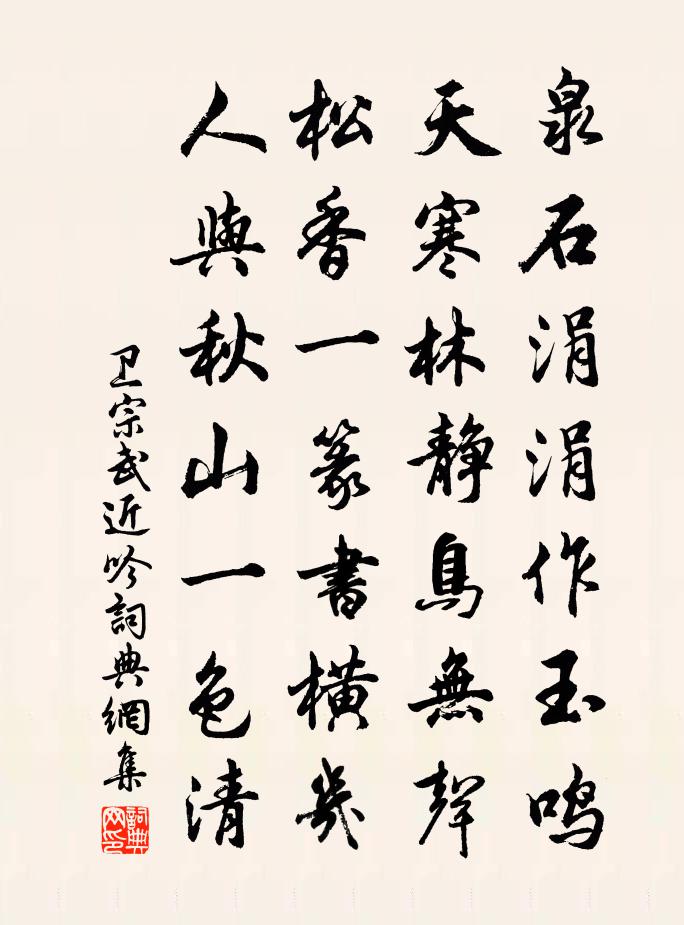 泉石涓涓作玉鸣
天寒林静鳥無聲
松香一篆書横幾
人與秋山一色清
卫宗武近吟詞典網集
詞典网印